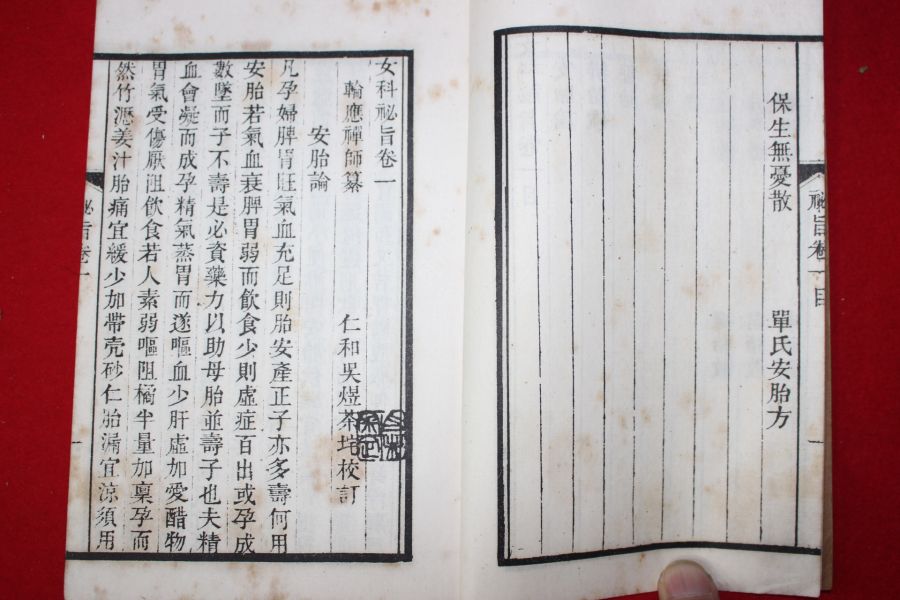 保生無憂散 單氏安胎方
祕旨卷一 目
女科祕旨卷一
輪應禪師纂 仁和吳煜茶坨校訂
安胎論
凡孕婦脾胃旺氣血充足則胎安產正子亦多壽何用
安胎若氣血衰脾胃弱而飲食少則虛症百出或孕成
數墜而子不壽是必資藥力以助母胎並壽子也夫精
血會凝而成孕精氣蒸胃而遂嘔血少肝虛加愛醋物
胃氣受傷厭阻飲食若人素弱嘔阻橘半量加稟孕而
然竹瀝姜汁胎痛宜緩少加帶壳砂仁胎漏宜涼須用
祕旨卷一